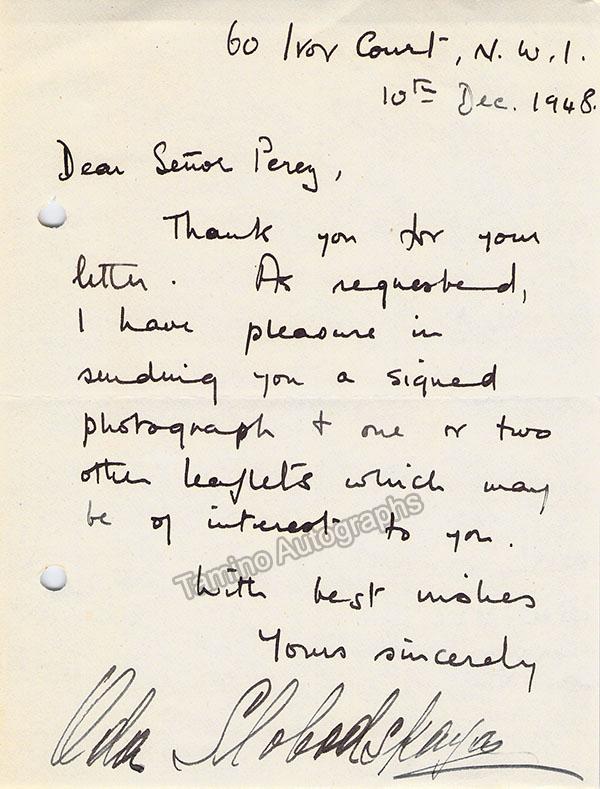 60 Ivor Court, N.W.1.
10th Dec. 1948.
Dear Señor Perez,
Thank you for your
letter. As requested,
I have pleasure in
sending you a signed
photograph + one or two
other leaflets which may
be of interest to you.
Tamino Autographs
With best wishes
Yours sincerely
Oda Slobodskaya